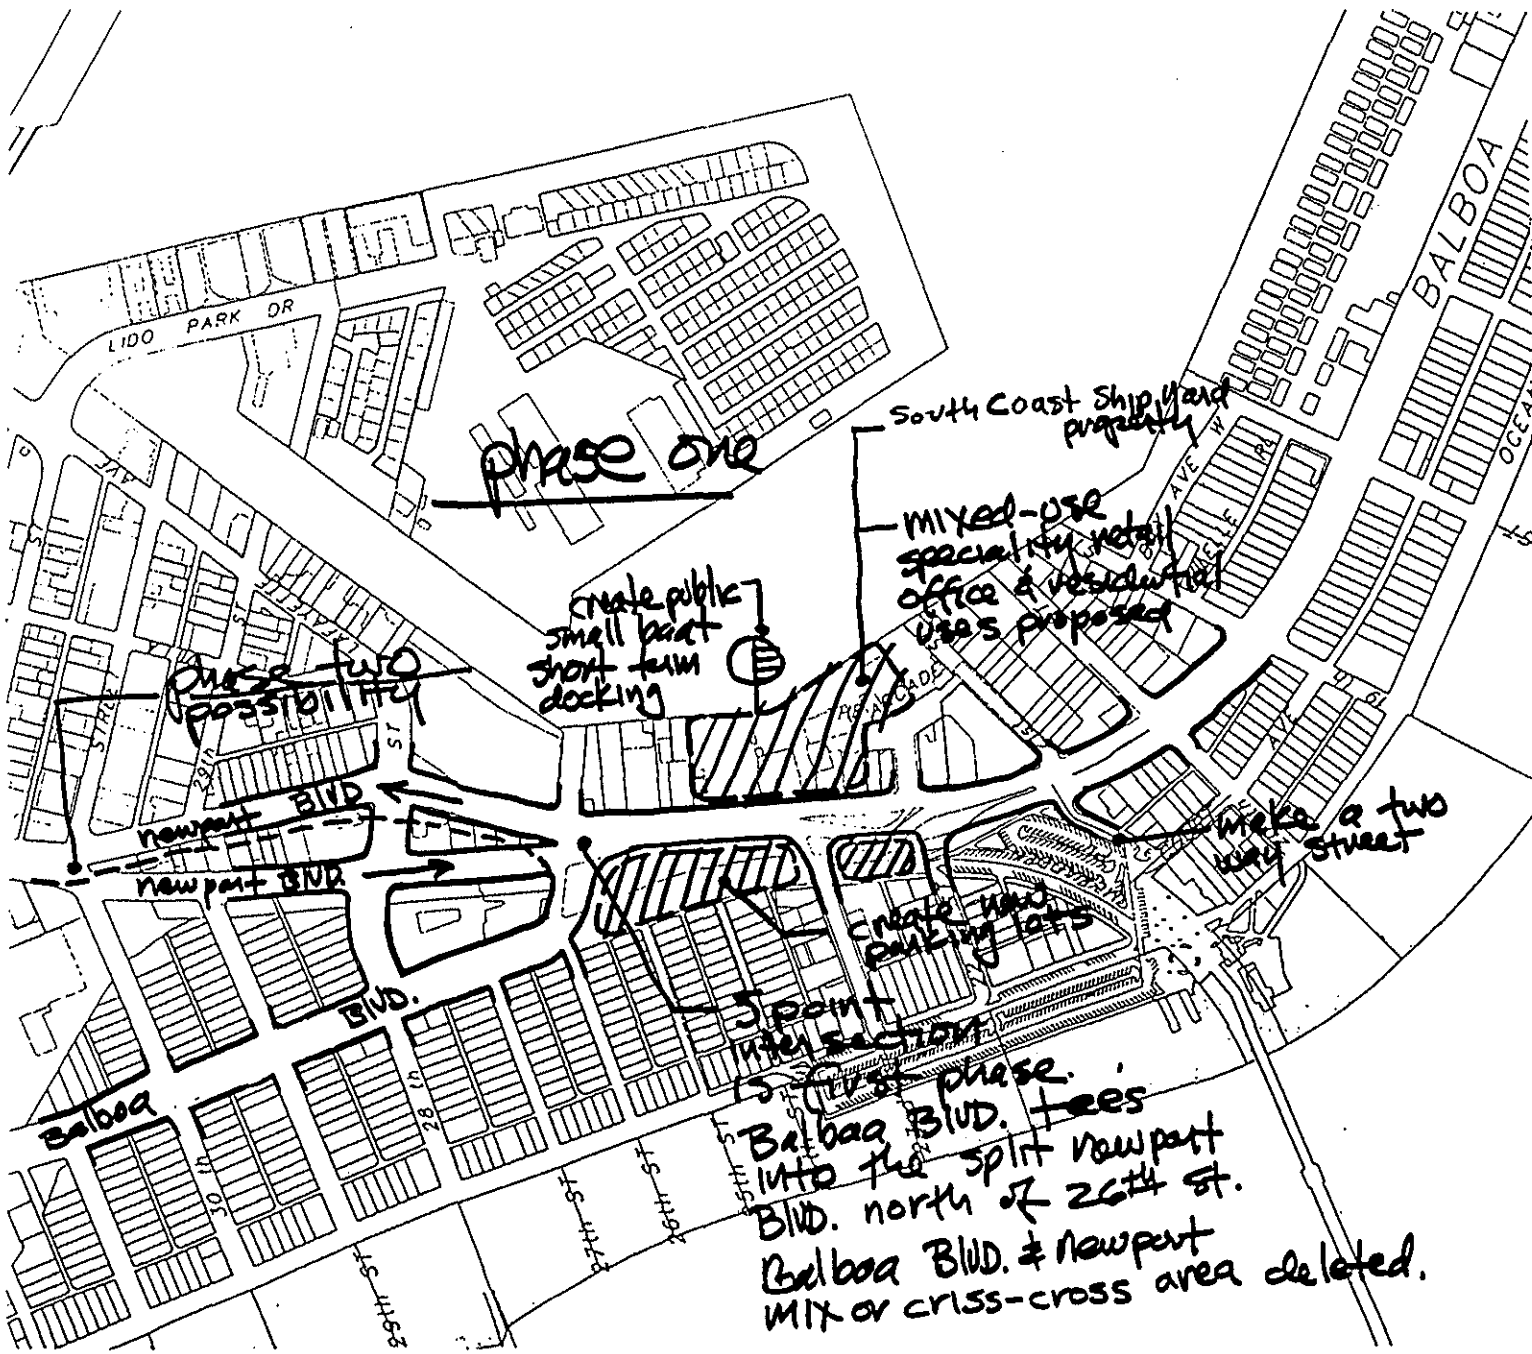 BALBOA
LIDO PARK DR
South Coast Ship Yard
property
phase one
OCEAN
AVE W
AVE
mixed-use
speciality retail
office & residential
uses proposed
create public
small boat
short term
docking
phase two
possibility
ARCADE
ST
29th
newport BLVD
newport BLVD.
make a two
way street
create new
parking lots
BLVD.
Balboa
5 point
intersection
is first phase.
Balboa BLVD. tee's
into the split newport
BLVD. north of 26th St.
Balboa BLVD. & newport
mix or criss-cross area deleted.
28 th
30 th
29th ST
27th ST
26th ST
25th ST